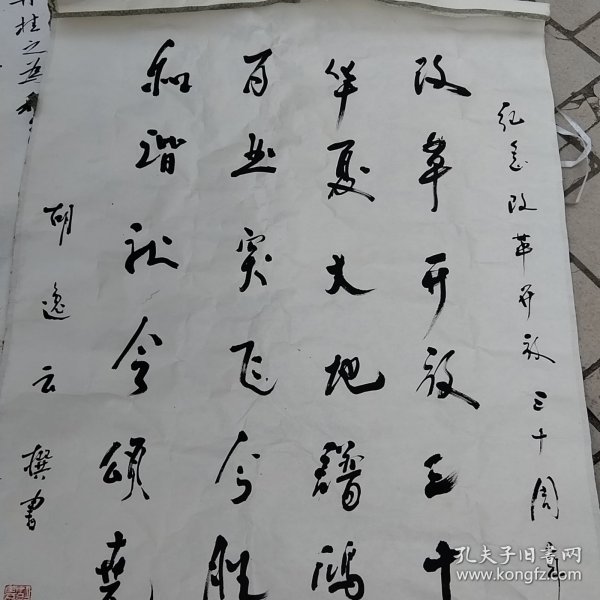 纪念改革开放三十周年
改革开放三十
华夏大地谱鸿
百业突飞今胜
和谐社会颂尧
胡逸云撰书
桂之英
孔夫子旧书网
www.kongfz.com